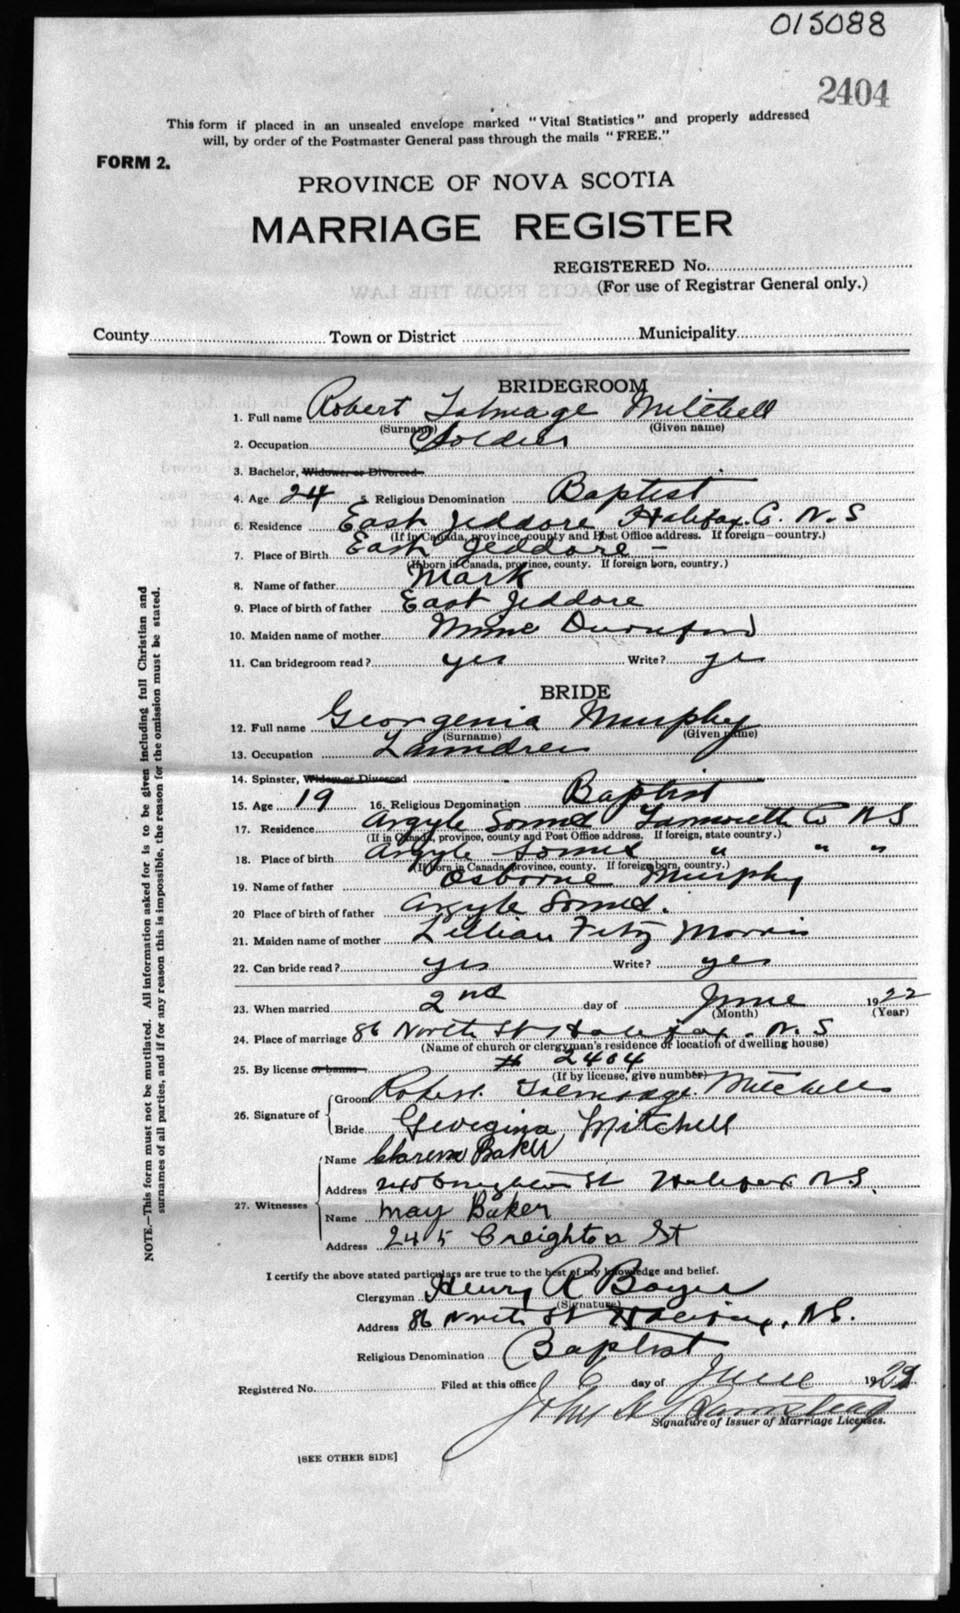 015088
2404
This form if placed in an unsealed envelope marked "Vital Statistics" and properly addressed
will, by order of the Postmaster General pass through the mails "FREE."
FORM 2.
PROVINCE OF NOVA SCOTIA
MARRIAGE REGISTER
REGISTERED No.
(For use of Registrar General only.)
County Town or District Municipality
BRIDEGROOM
1. Full name Robert Talmage Mitchell
(Surname) (Given name)
2. Occupation Soldier
3. Bachelor, Widower or Divorced
4. Age 24 5 Religious Denomination Baptist
6. Residence East Jeddore Halifax Co. N.S
(If in Canada, province, county and Post Office address. If foreign—country.)
7. Place of Birth East Jeddore -
(If born in Canada, province, county. If foreign born, country.)
8. Name of father Mark
9. Place of birth of father East Jeddore
10. Maiden name of mother
11. Can bridegroom read? yes Write? yes
BRIDE
12. Full name Georgenia Murphy
(Surname) (Given name)
13. Occupation
14. Spinster, Widow or Divorced
15. Age 19 16. Religious Denomination Baptist
17. Residence Argyle Sound Yarmouth Co N S
(If in Canada, province, county and Post Office address. If foreign, state country.)
18. Place of birth Argyle Sound " " "
(If born in Canada, province, county. If foreign born, country.)
19. Name of father Osborne Murphy
20 Place of birth of father Argyle Sound.
21. Maiden name of mother Lillian Fitz Morris
22. Can bride read? yes Write? yes
23. When married 2nd day of June 1922
(Month) (Year)
24. Place of marriage 86 North St Halifax. N. S
(Name of church or clergyman's residence or location of dwelling house)
25. By license or banns # 2404
(If by license, give number)
26. Signature of Groom Robert Talmadge Mitchell
Bride Georgina Mitchell
27. Witnesses Name Baker
Address 245 Creighton St Halifax N.S.
Name May Baker
Address 245 Creighton St
I certify the above stated particulars are true to the best of my knowledge and belief.
Clergyman Henry R Boyer
(Signature)
Address 86 North St Halifax, N.S.
Religious Denomination Baptist
Registered No. Filed at this office 6 day of June 1922
John
Signature of Issuer of Marriage Licenses.
[SEE OTHER SIDE]
NOTE.—This form must not be mutilated. All information asked for is to be given including full Christian and
surnames of all parties, and if for any reason this is impossible, the reason for the omission must be stated.